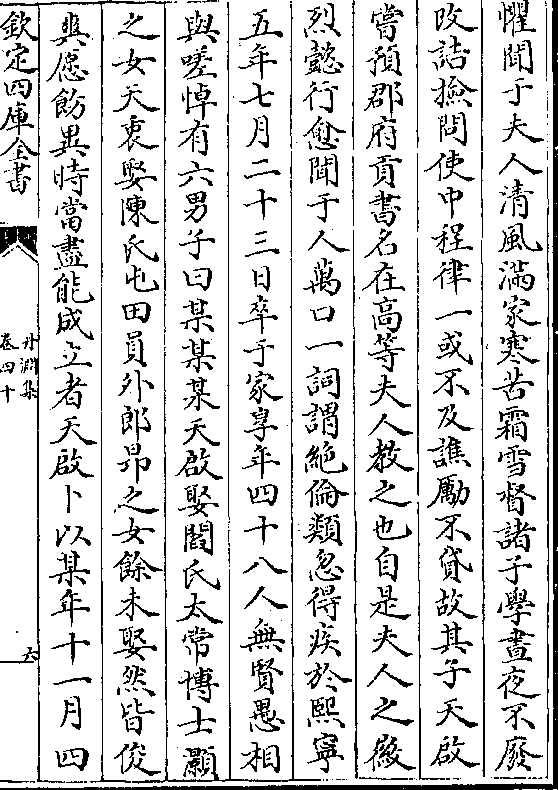 懼聞于夫人清風滿家寒苦霜雪督諸子學晝夜不廢
攷詰撿問使中程律一或不及譙厲不貸故其子天啟
嘗預郡府貢書名在高等夫人教之也自是夫人之徽
烈懿行愈聞于人萬口一詞謂絶倫類忽得疾於熙寧
五年七月二十三日卒于家享年四十八人無賢愚相
與嗟悼有六男子曰某某某天啟娶閻氏太常博士灝
之女天衷娶陳氏屯田員外郎昻之女餘未娶然皆俊
爽愿飭異時當盡能成立者天啟卜以某年十一月四
欽定四庫全書
丹淵集
卷四十
六